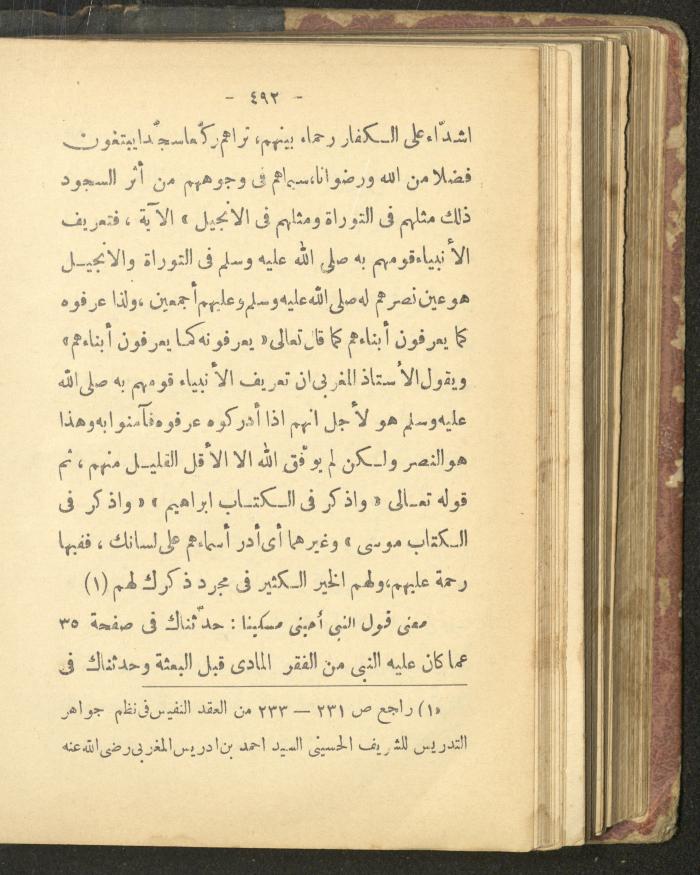 - ٤٩٢ -
اشدّاء على الكفار رحماء بينهم، تراهم ركّعا سجّدا يبتغون
فضلا من الله ورضوانا، سيماهم فى وجوههم من أثر السجود
ذلك مثلهم فى التوراة ومثلهم فى الانجيل » الآية ، فتعريف
الأنبياء قومهم به صلى الله عليه وسلم فى التوراة والانجيل
هو عين نصرهم له صلى الله عليه وسلم وعليهم أجمعين ، ولذا عرفوه
كما يعرفون أبناءهم كما قال تعالى « يعرفونه كما يعرفون أبناءهم »
ويقول الأستاذ المغربى ان تعريف الأنبياء قومهم به صلى الله
عليه وسلم هو لأجل انهم اذا أدركوه عرفوه فآمنوا به وهذا
هو النصر ولكن لم يوفّق الله الا الأقل القليل منهم ، ثم
قوله تعالى « واذكر فى الكتاب ابراهيم » « واذكر فى
الكتاب موسى » وغيرهما أى أدر أسماءهم على لسانك ، ففيها
رحمة عليهم، ولهم الخير الكثير فى مجرد ذكرك لهم (١)
معنى قول النبى أحينى مسكينا : حدّثناك فى صفحة ٣٥
عما كان عليه النبى من الفقر المادى قبل البعثة وحدثناك فى
«١) راجع ص ٢٣١ — ٢٣٣ من العقد النفيس فى نظم جواهر
التدريس للشريف الحسينى السيد احمد بن ادريس المغربى رضى الله عنه